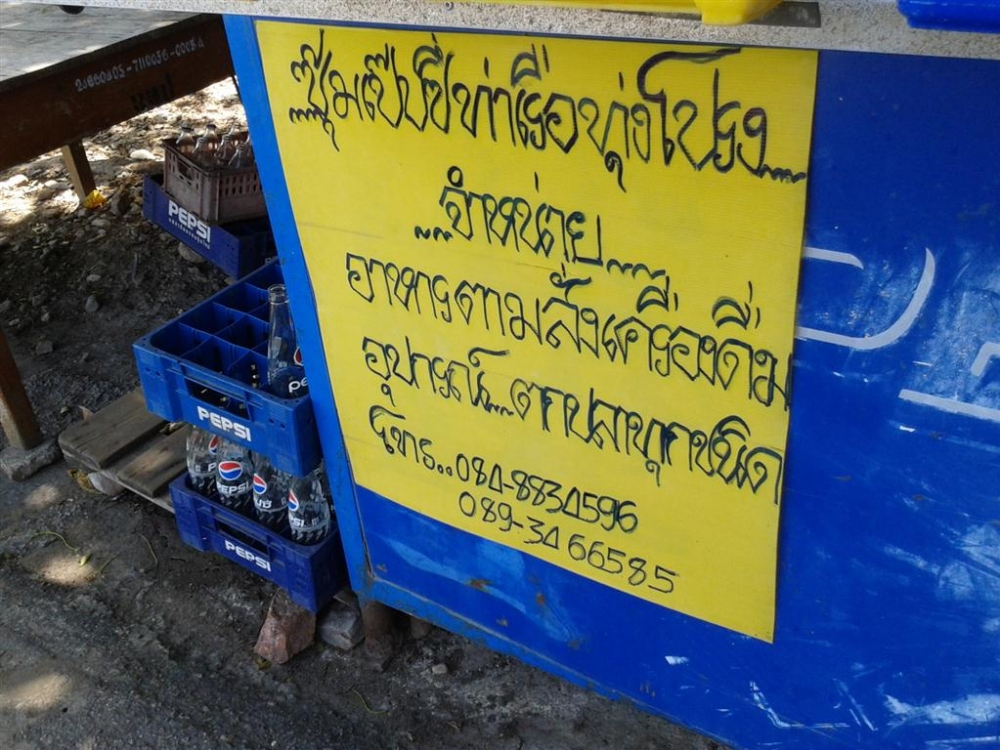 ซุ้มเป๊ปซี่ท่าเรือทุ่งโปรง
จำหน่าย
อาหารตามสั่งเครื่องดื่ม
อุปกรณ์..ตกปลาทุกชนิด
โทร..084-8834596
089-3466585
PEPSI
PEPSI
PEPSI